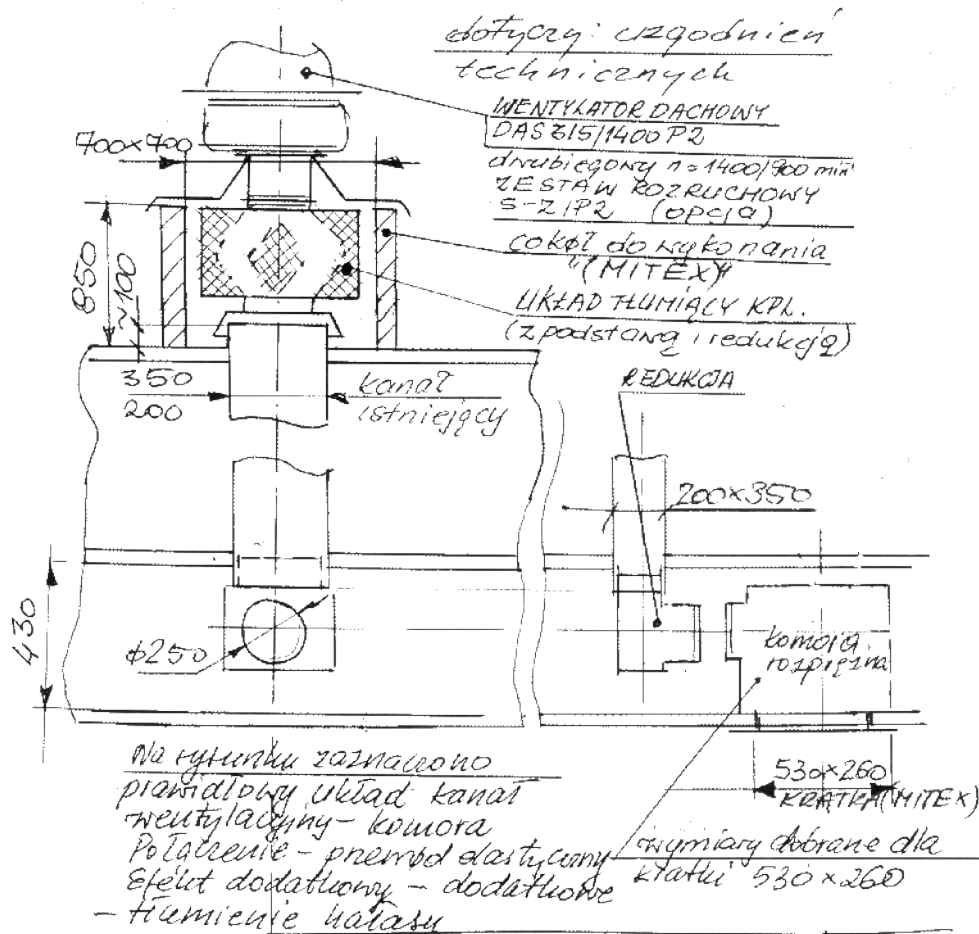 dotyczy: uzgodnień
technicznych
WENTYLATOR DACHOWY
DAS Z15/1400 P2
dwubiegowy n=1400/900 min
ZESTAW ROZRUCHOWY
S-Z1P2 (OPCJA)
cokół do wykonania
"(MITEX)"
UKŁAD TŁUMIĄCY KPL.
(z podstawą i redukcją)
700×700
850
~100
350
200
kanał
istniejący
REDUKCJA
200×350
430
φ250
komora
rozprężna
530×260
KRATKA (MITEX)
Na rysunku zaznaczono
prawidłowy układ kanał
wentylacyjny - komora
Połączenie - przewód elastyczny
Efekt dodatkowy - dodatkowe
- tłumienie hałasu
wymiary dobrane dla
kratki 530×260